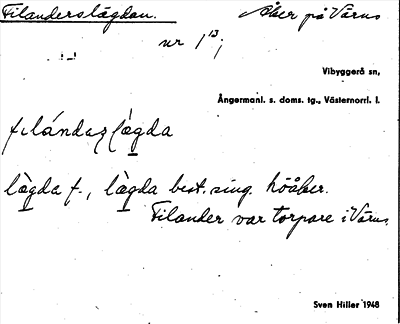 Filanderslägdan. Åker på Värns
nr 1¹³;
Vibyggerå sn,
Ångermanl. s. doms. tg., Västernorrl. l.
filándaʒ lägda
lägda f., lägda best. sing. hööker.
Filander var torpare i Värns.
Sven Hiller 1948